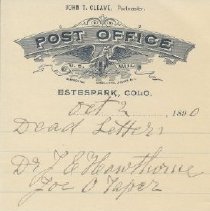 JOHN T. CLEAVE, Postmaster.
POST OFFICE
U.S. MAIL
ESTESPARK, COLO.
Oct 2 1890
Dead Letters
Dr J E Hawthorne
Joe O Taper